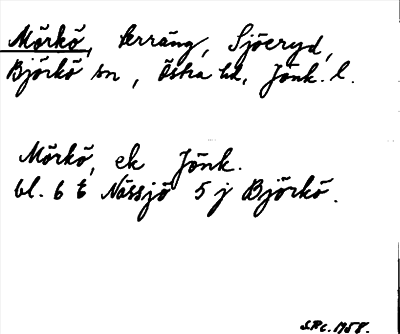 Mörkö, terräng, Sjöeryd,
Björkö sn, Östra hd, Jönk. l.
Mörkö, ek Jönk.
bl. 6 E Nässjö 5 j Björkö.
1958.